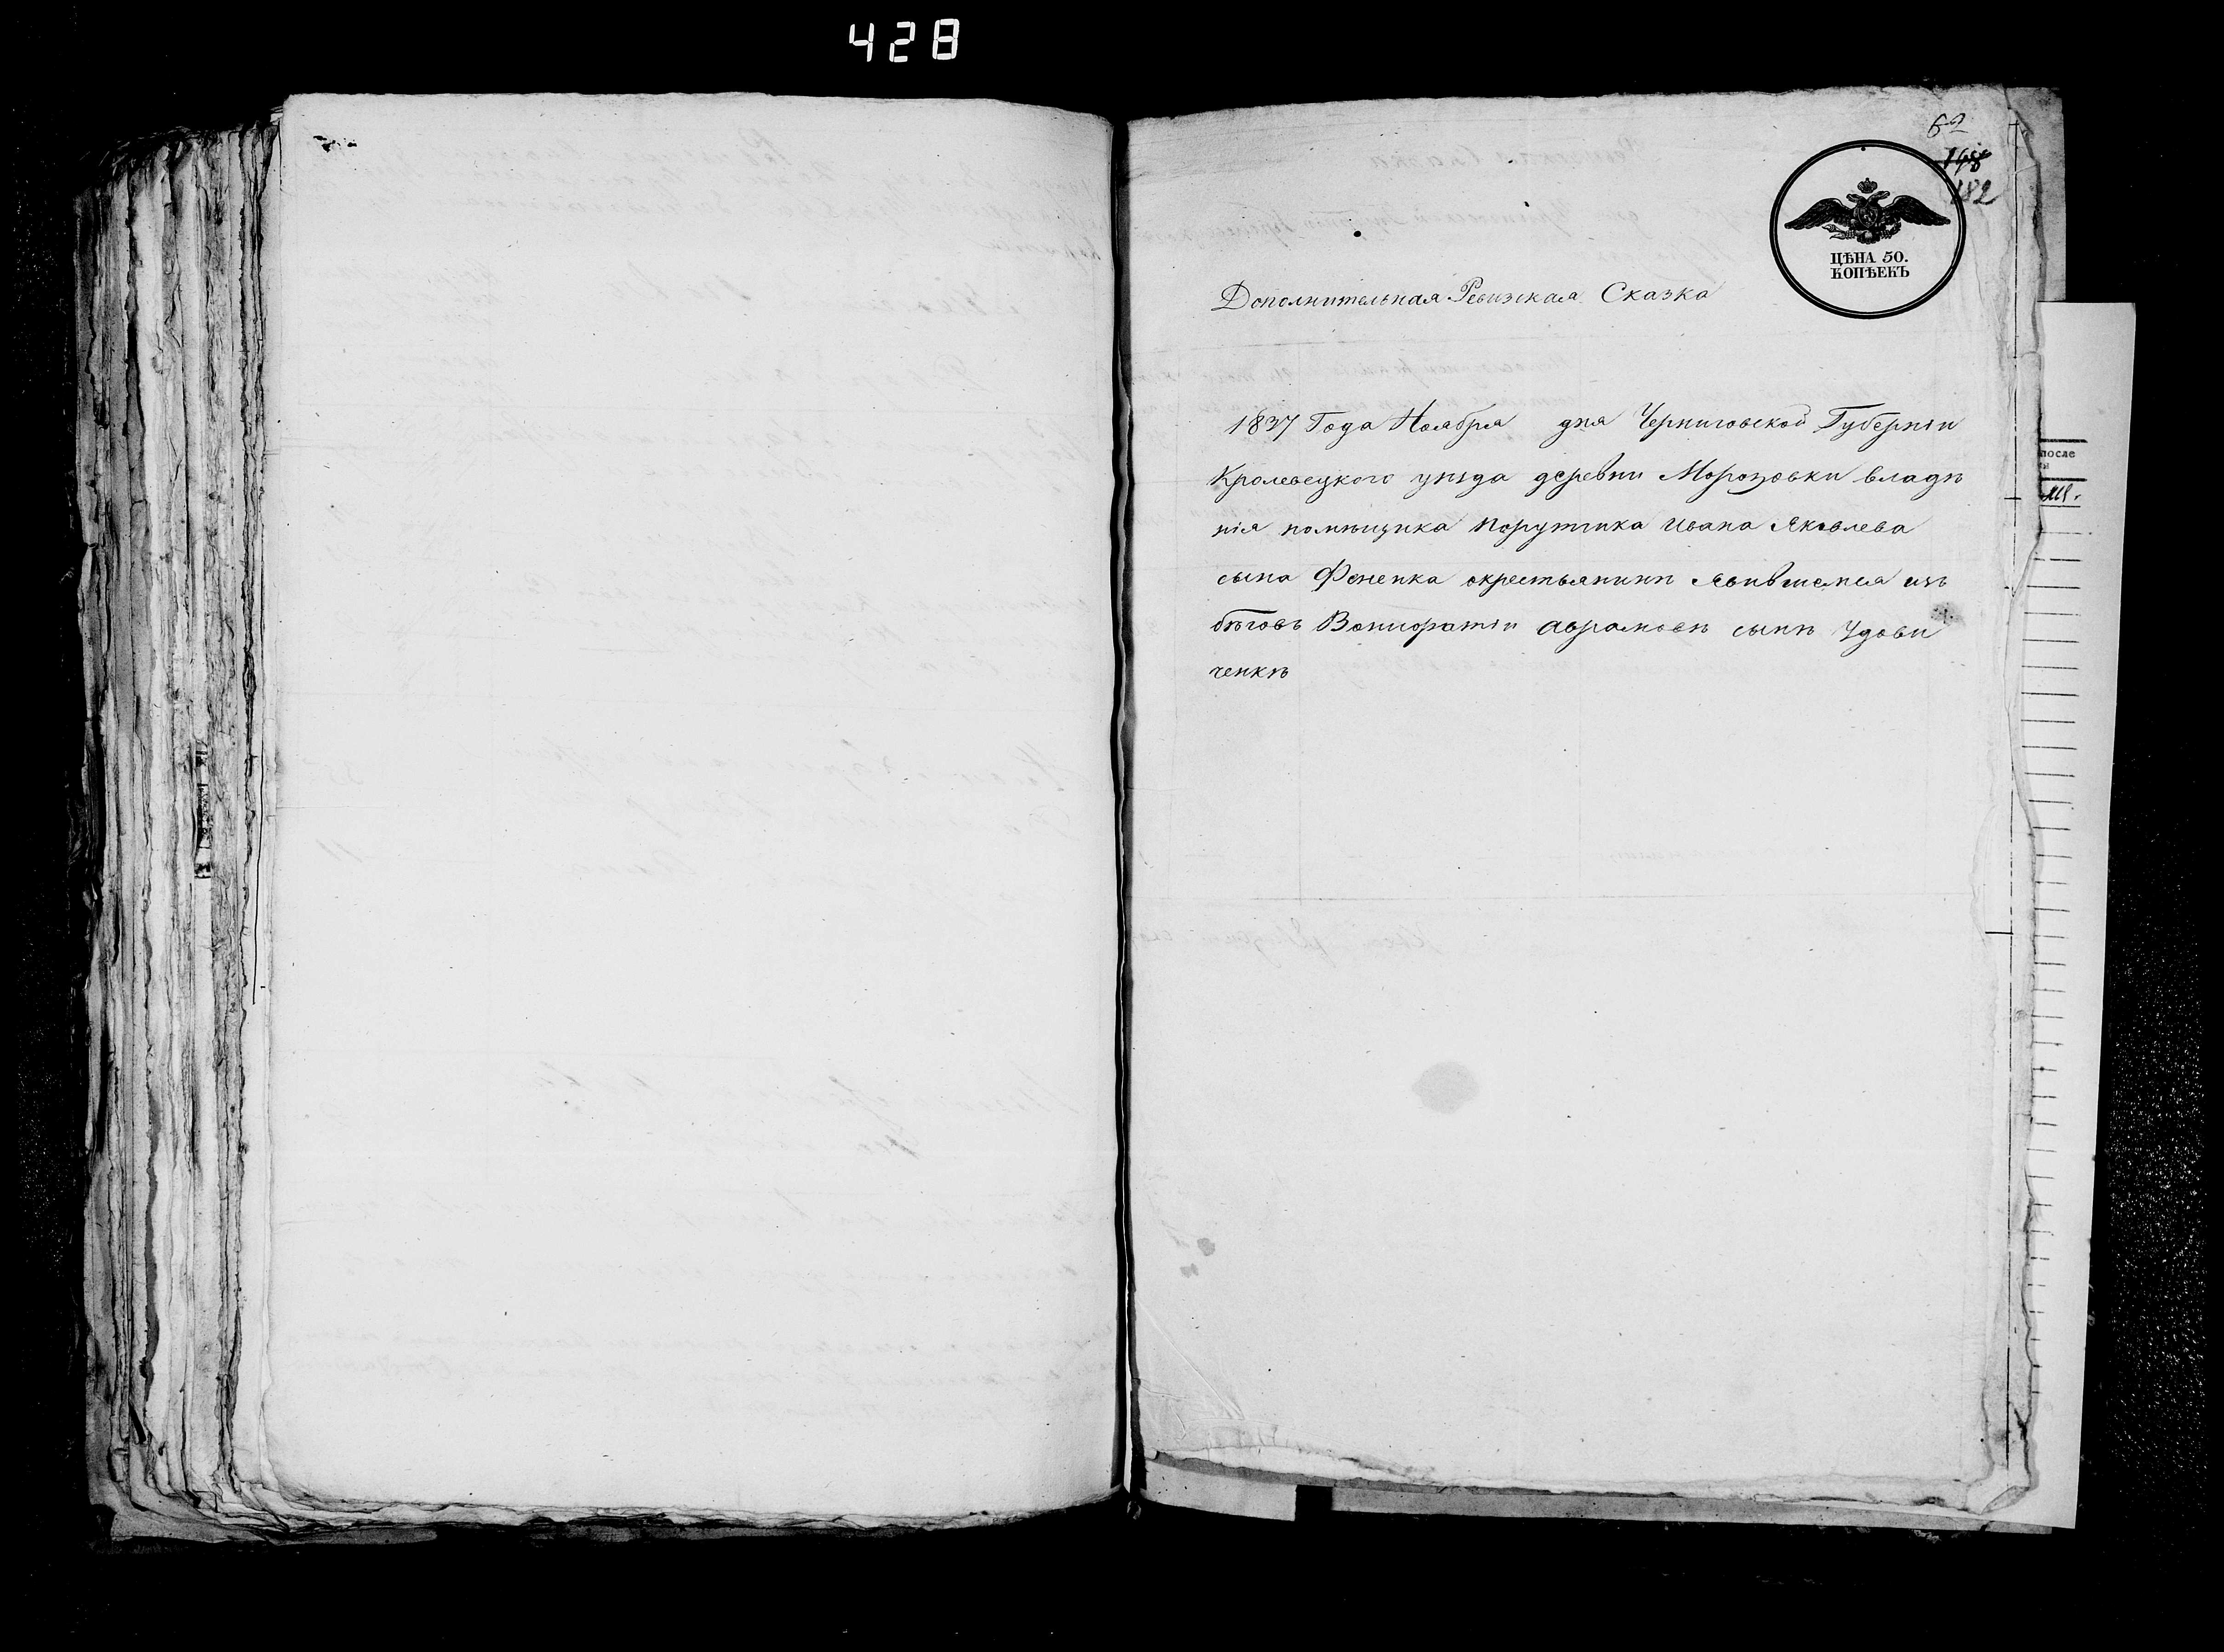 428
62
148
182
ЦѢНА 50.
КОПѢЕКЪ
Дополнительная Ревизская Сказка
1837 Года Ноября дня Черниговской Губерніи
Кролевецкого уѣзда деревни Морозовки владѣ
нія помѣщика порутчика Ивана Яковлева
сына окрестьянинѣ явившемся изъ
бѣговъ Авраамовѣ сынѣ Удови
ченкѣ
после